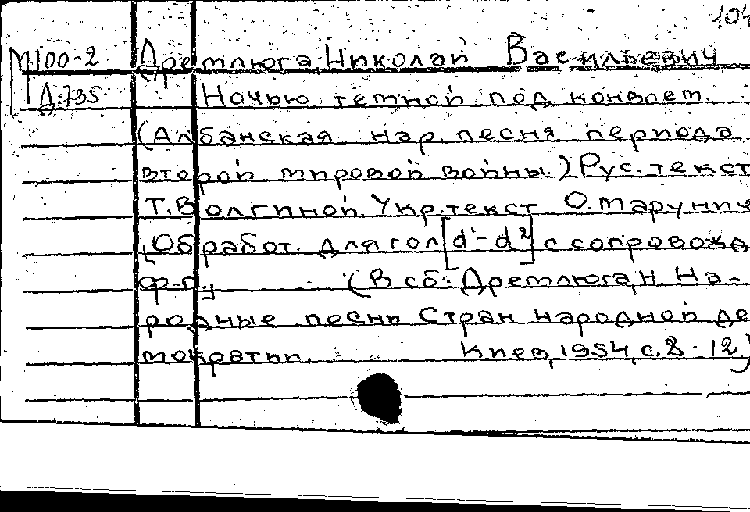 104
М100-2 Дремлюга, Николай Васильевич
Д.735 Ночью темной под конвоем.
(Албанская нар. песня периода
второй мировой войны.) Рус. текст
Т. Волгиной. Укр. текст О. Марунич
[Обработ. для гол [d¹-d²] с сопровожд
ф-п] (В сб: Дремлюга, Н. На-
родные песни Стран народной де
мократии. Киев, 1954, с. 8-12)